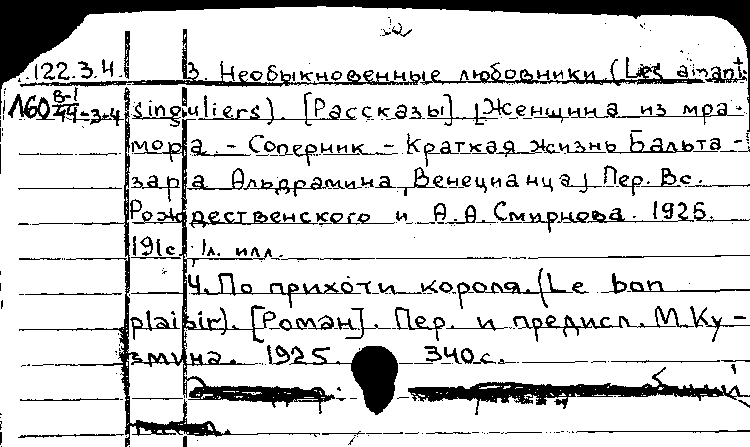 .122.3.4. 3. Необыкновенные любовники (Les amant
singuliers). [Рассказы]. [Женщина из мра-
мора. - Соперник - Краткая жизнь Бальта-
зара Альдрамина, Венецианца] Пер. Вс.
Рождественского и А.А. Смирнова. 1926.
191с. 1л. илл.
4. По прихоти короля. (Le bon
plaisir). [Роман]. Пер. и предисл. М. Ку-
змина. 1925. 340с.